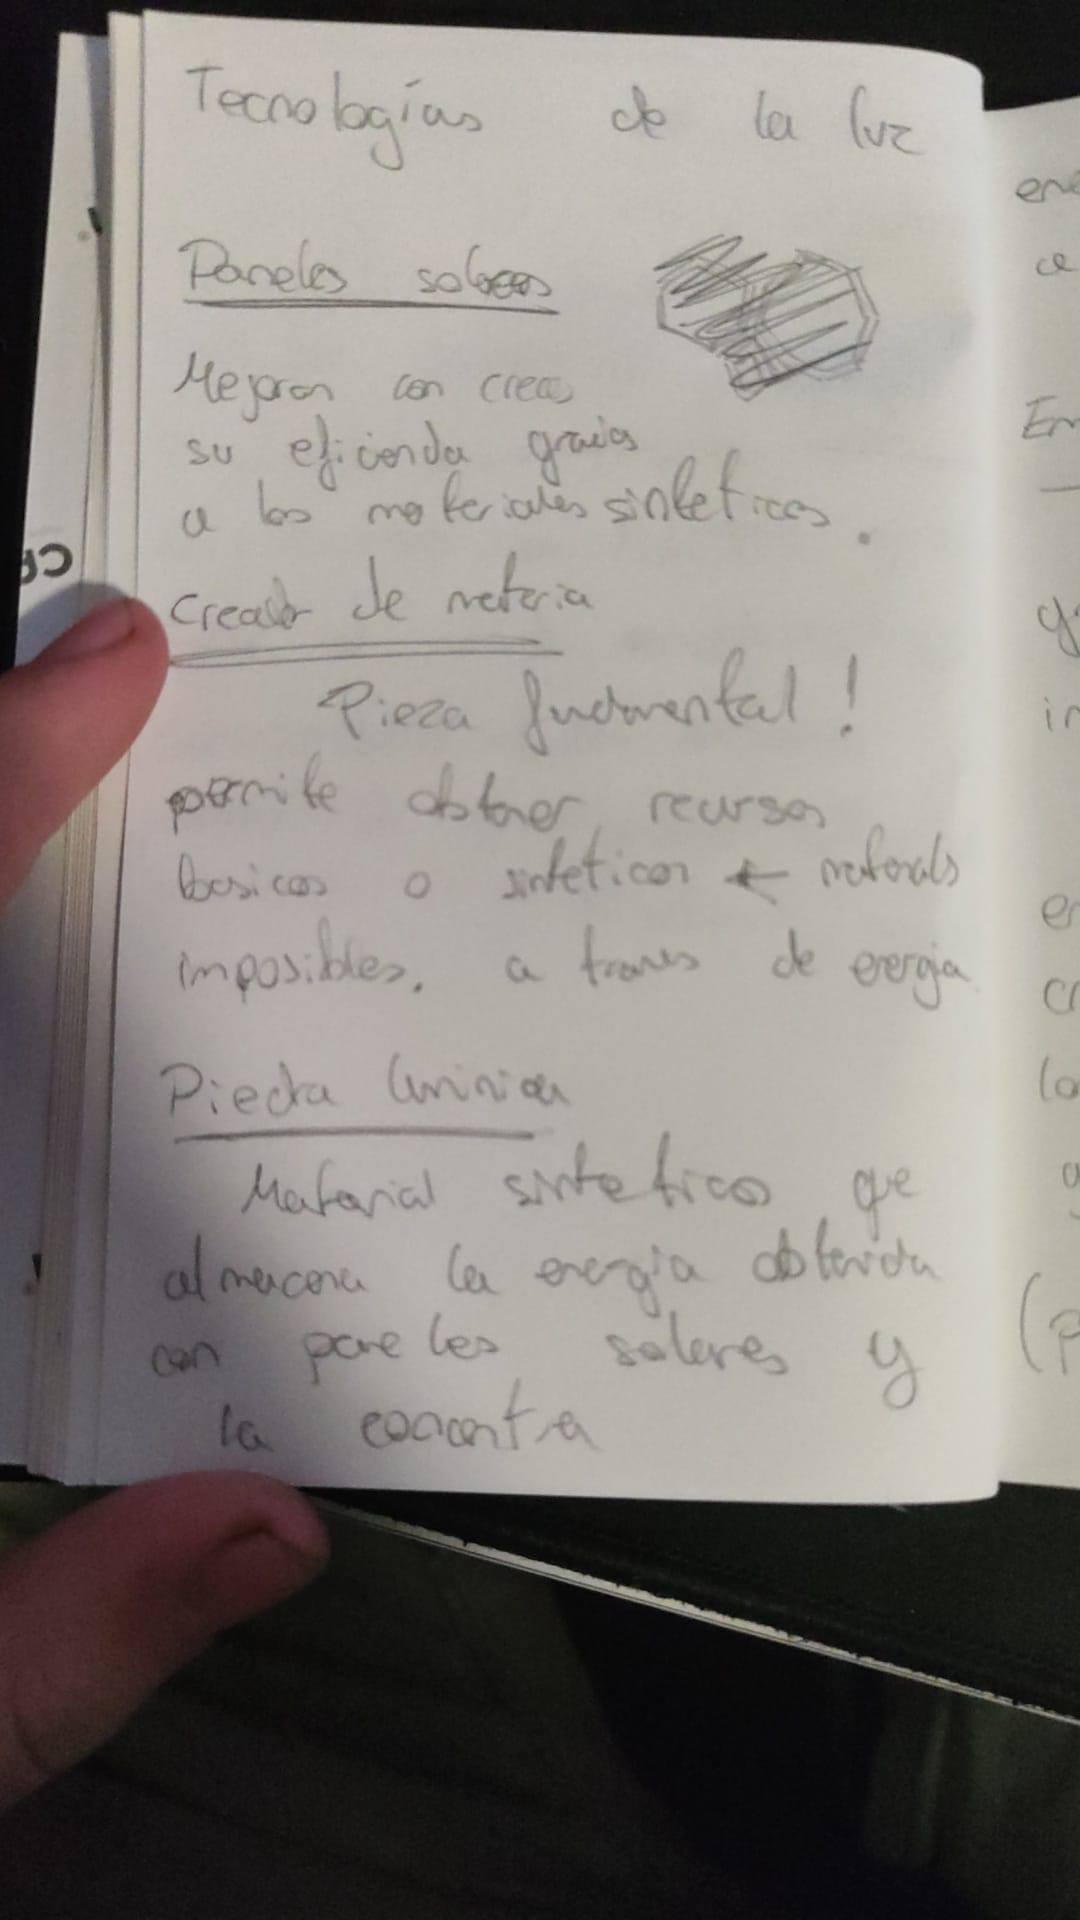 Tecnologías de la luz
Paneles solares
Mejoran con creces
su eficienda gracias
a los materiales sinteticos.
Creador de materia
Pieza fundamental!
permite obtener recursos
basicos o sinteticos ← materials
imposibles. a traves de energia
Piedra luminica
Material sintetico que
almacena la energia obtenida
con paneles solares y
la concentra